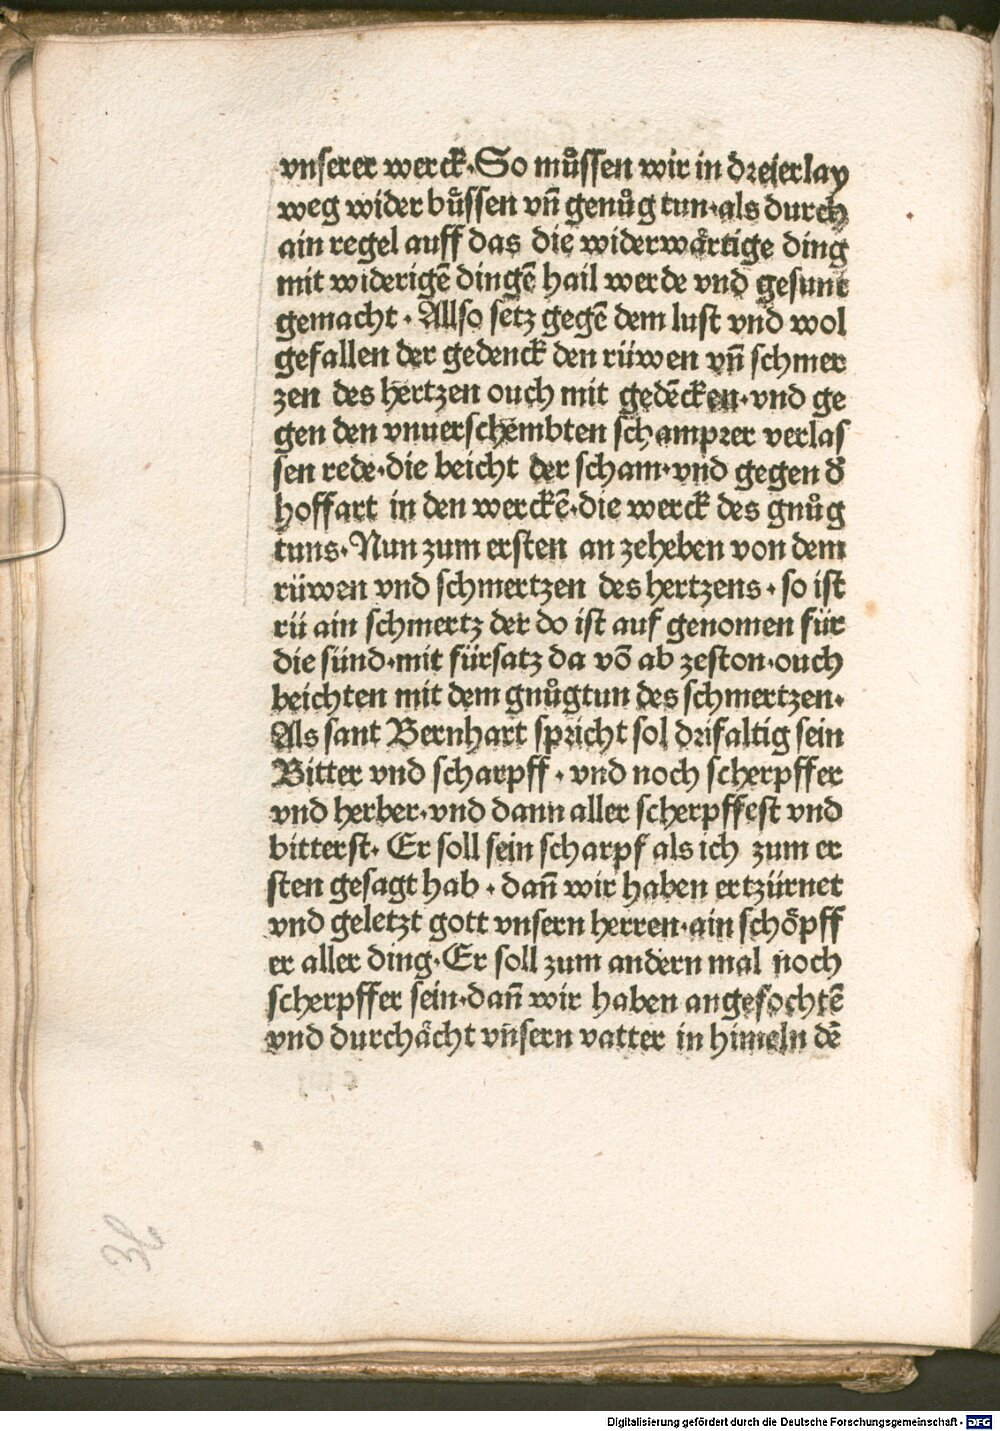 vnserer werck·So muͦssen wir in dreierlay
weg wider buͤssen vn̄ genuͦg tun·als durch
ain regel auff das die widerwaͤrtige ding
mit widerigē dingē hail werde vnd gesunt
gemacht · Allso setz gegē dem lust vnd wol
gefallen der gedenck den rüwen vn̄ schmer
zen des hertzen ouch mit gedēcken·vnd ge
gen den vnuerschembten schamprer verlas
sen rede·die beicht der scham·vnd gegen d̕
hoffart in den werckē·die werck des gnuͦg
tuns·Nun zum ersten an zeheben von dem
rüwen vnd schmertzen des hertzens · so ist
rü ain schmertz der do ist auf genomen für
die sünd·mit fürsatz da vō ab zeston·ouch
beichten mit dem gnuͦgtun des schmertzen·
Als sant Bernhart spricht sol drifaltig sein
Bitter vnd scharpff · vnd noch scherpffer
vnd herber·vnd dann aller scherpffest vnd
bitterst· Er soll sein scharpf als ich zum er
sten gesagt hab · dan̄ wir haben ertzürnet
vnd geletzt gott vnsern herren·ain schoͤpff
er aller ding·Er soll zum andern mal noch
scherpffer sein·dan̄ wir haben angefochtē
vnd durchaͤcht vnsern vatter in himeln dē
Digitalisierung gefördert durch die Deutsche Forschungsgemeinschaft - DFG